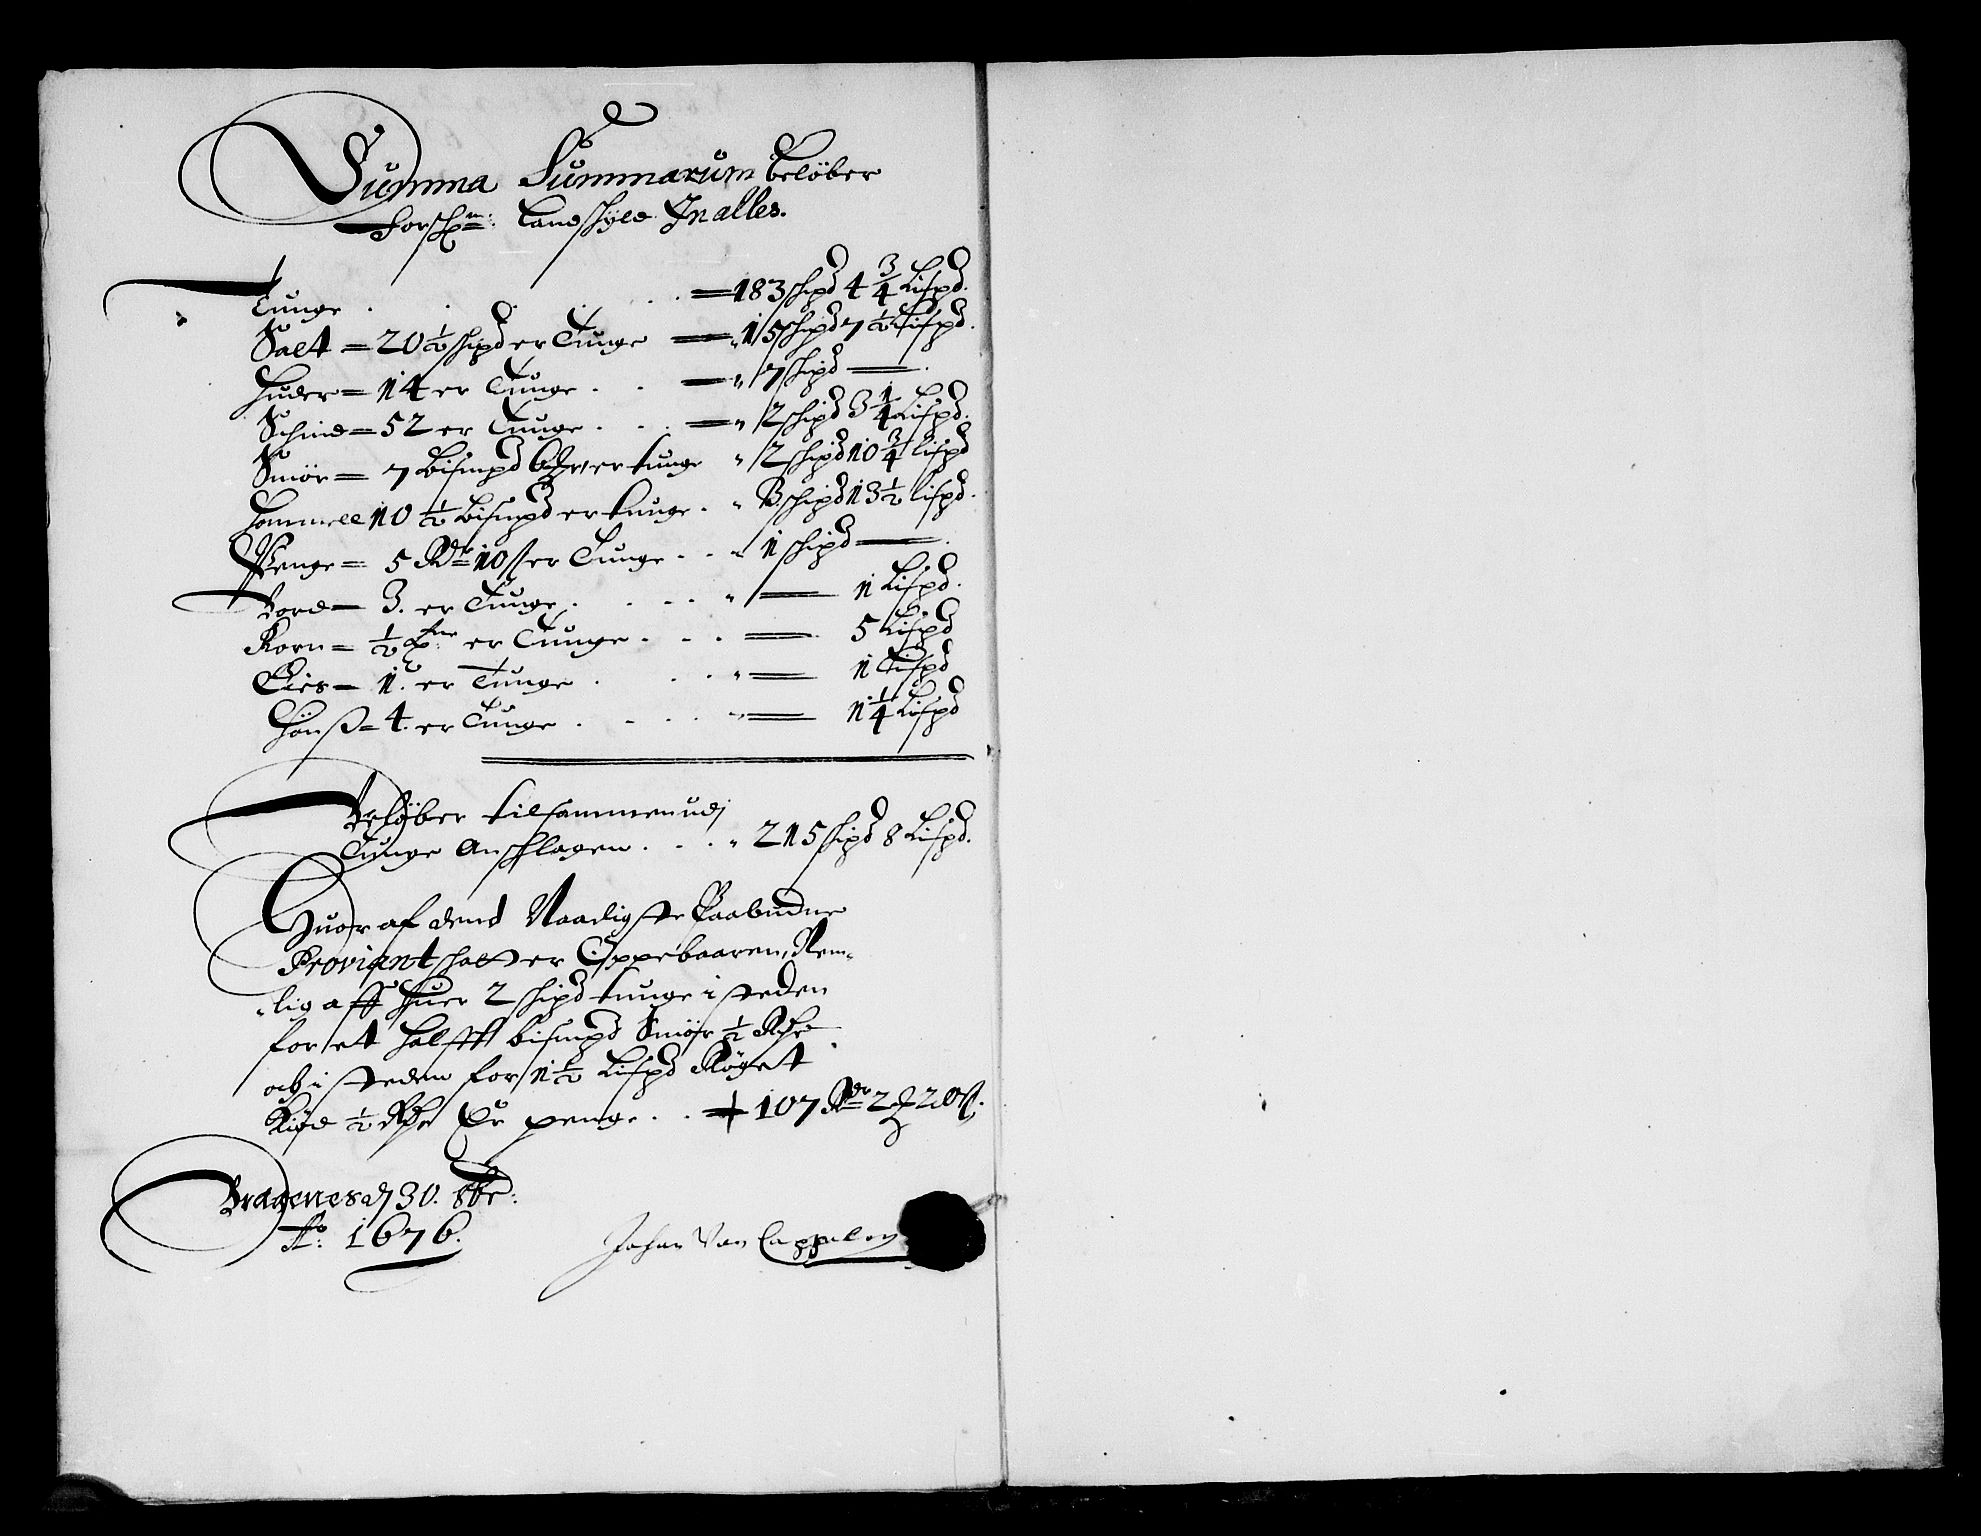 Summa Summarum beløber
forschne: Landschyld In alles.
Tunge . . . . . = 183 schipd 4 3/4 Lispd.
Salt = 20 1/2 schipd er Tunge = " 15 schipd 7 1/2 Lispd.
Huder = 14 er Tunge . . = " 7 schipd — .
Schind = 52 er Tunge . . . = " 2 schipd 3 1/4 Lispd.
Smør = 7 Bismpd er tunge " 2 schipd 10 3/4 lispd
Hommell 10 1/2 Bismpd er tunge . " 3 schipd 13 1/2 lispd.
Penge = 5 Rdr 10 ß er Tunge . . " 1 schipd — .
Bord = 3. er Tunge . . . . " — 1 Lispd.
Korn = 1/2 er Tunge . . . — 5 Lispd
Gies = 1. er Tunge . . . " — 1 Lispd
Hönß = 4. er Tunge . . . . " — 1 1/4 Lispd
Beløber tilsammen udj
Tunge Anschlagen . . . " 215 schipd 8 Lispd.
Huor af dend Naadigste Paabudne
Proviant schatt er Oppebaaren, Nem-
lig aff huer 2 schipd tunge i steden
for et halfft bismpd Smør 1/2 Rdr
och i steden for 1 1/2 Lispd Røget
Kiød 1/2 Rdr Er penge . . 107 Rdr 2 20 ß.
Bragenes dj 30. 8br:
Ao: 1676.
Johan Van Cappelen